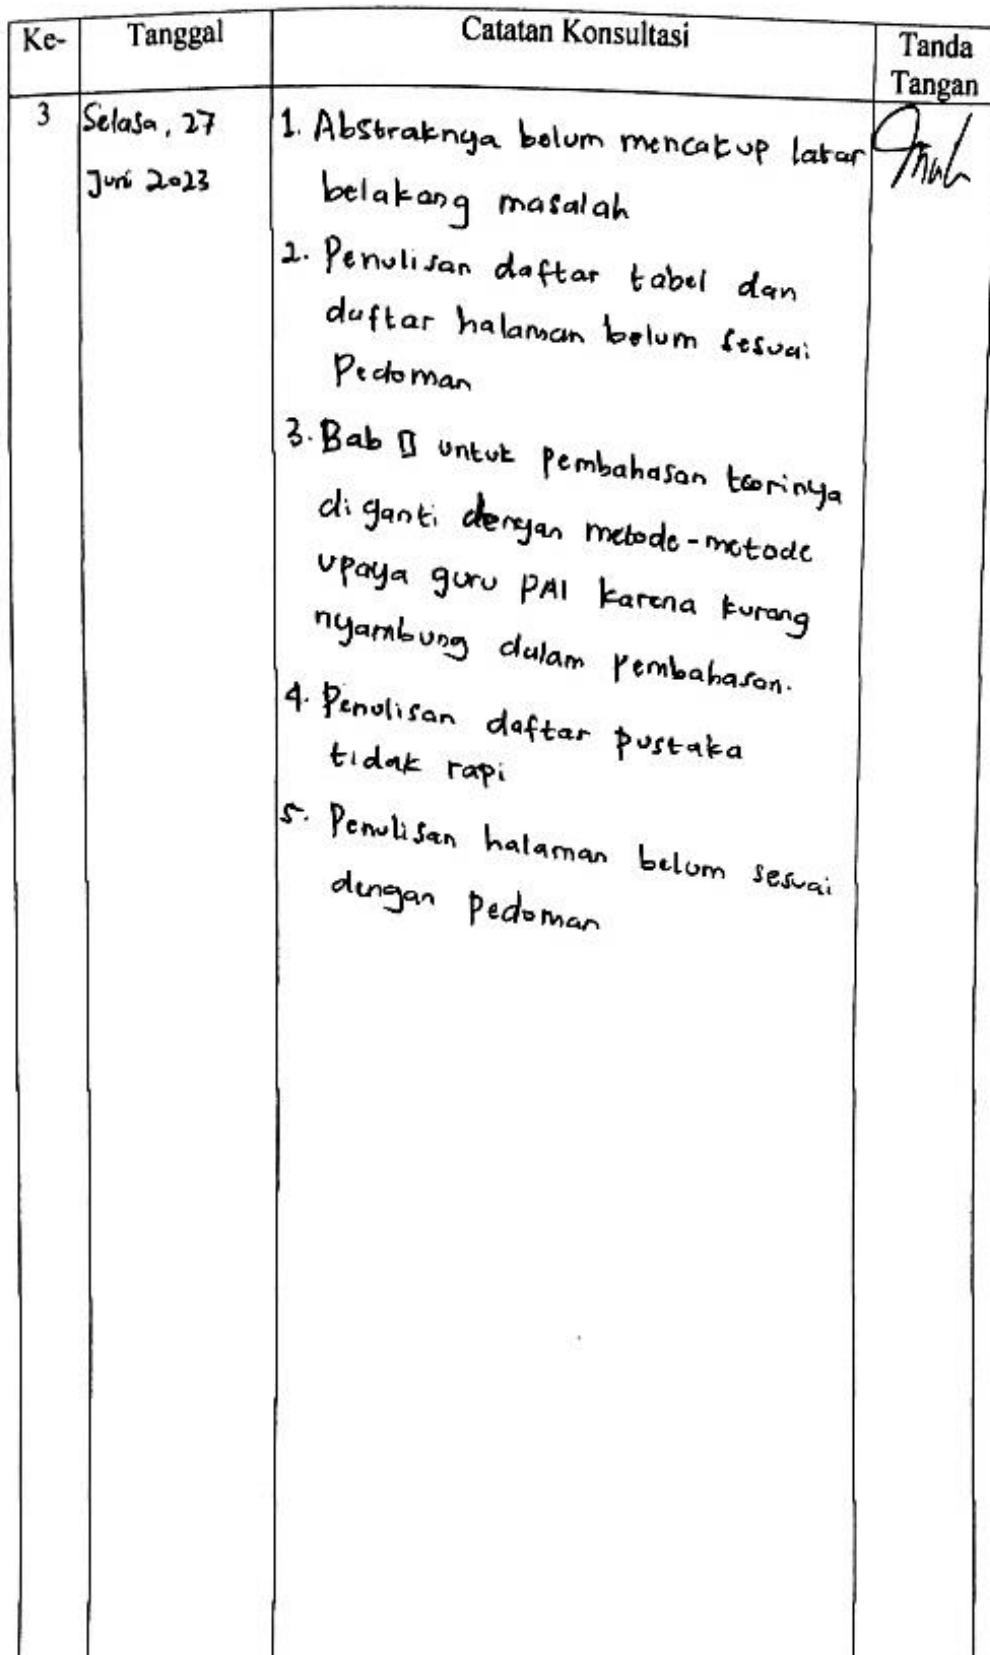 Ke- Tanggal Catatan Konsultasi Tanda
Tangan
3 Selasa, 27
Juni 2023
1. Abstraknya belum mencakup latar
belakang masalah
2. Penulisan daftar tabel dan
daftar halaman belum sesuai
Pedoman
3. Bab II untuk pembahasan teorinya
di ganti dengan metode-metode
upaya guru PAI karena kurang
nyambung dalam pembahasan.
4. Penulisan daftar pustaka
tidak rapi
5. Penulisan halaman belum sesuai
dengan Pedoman